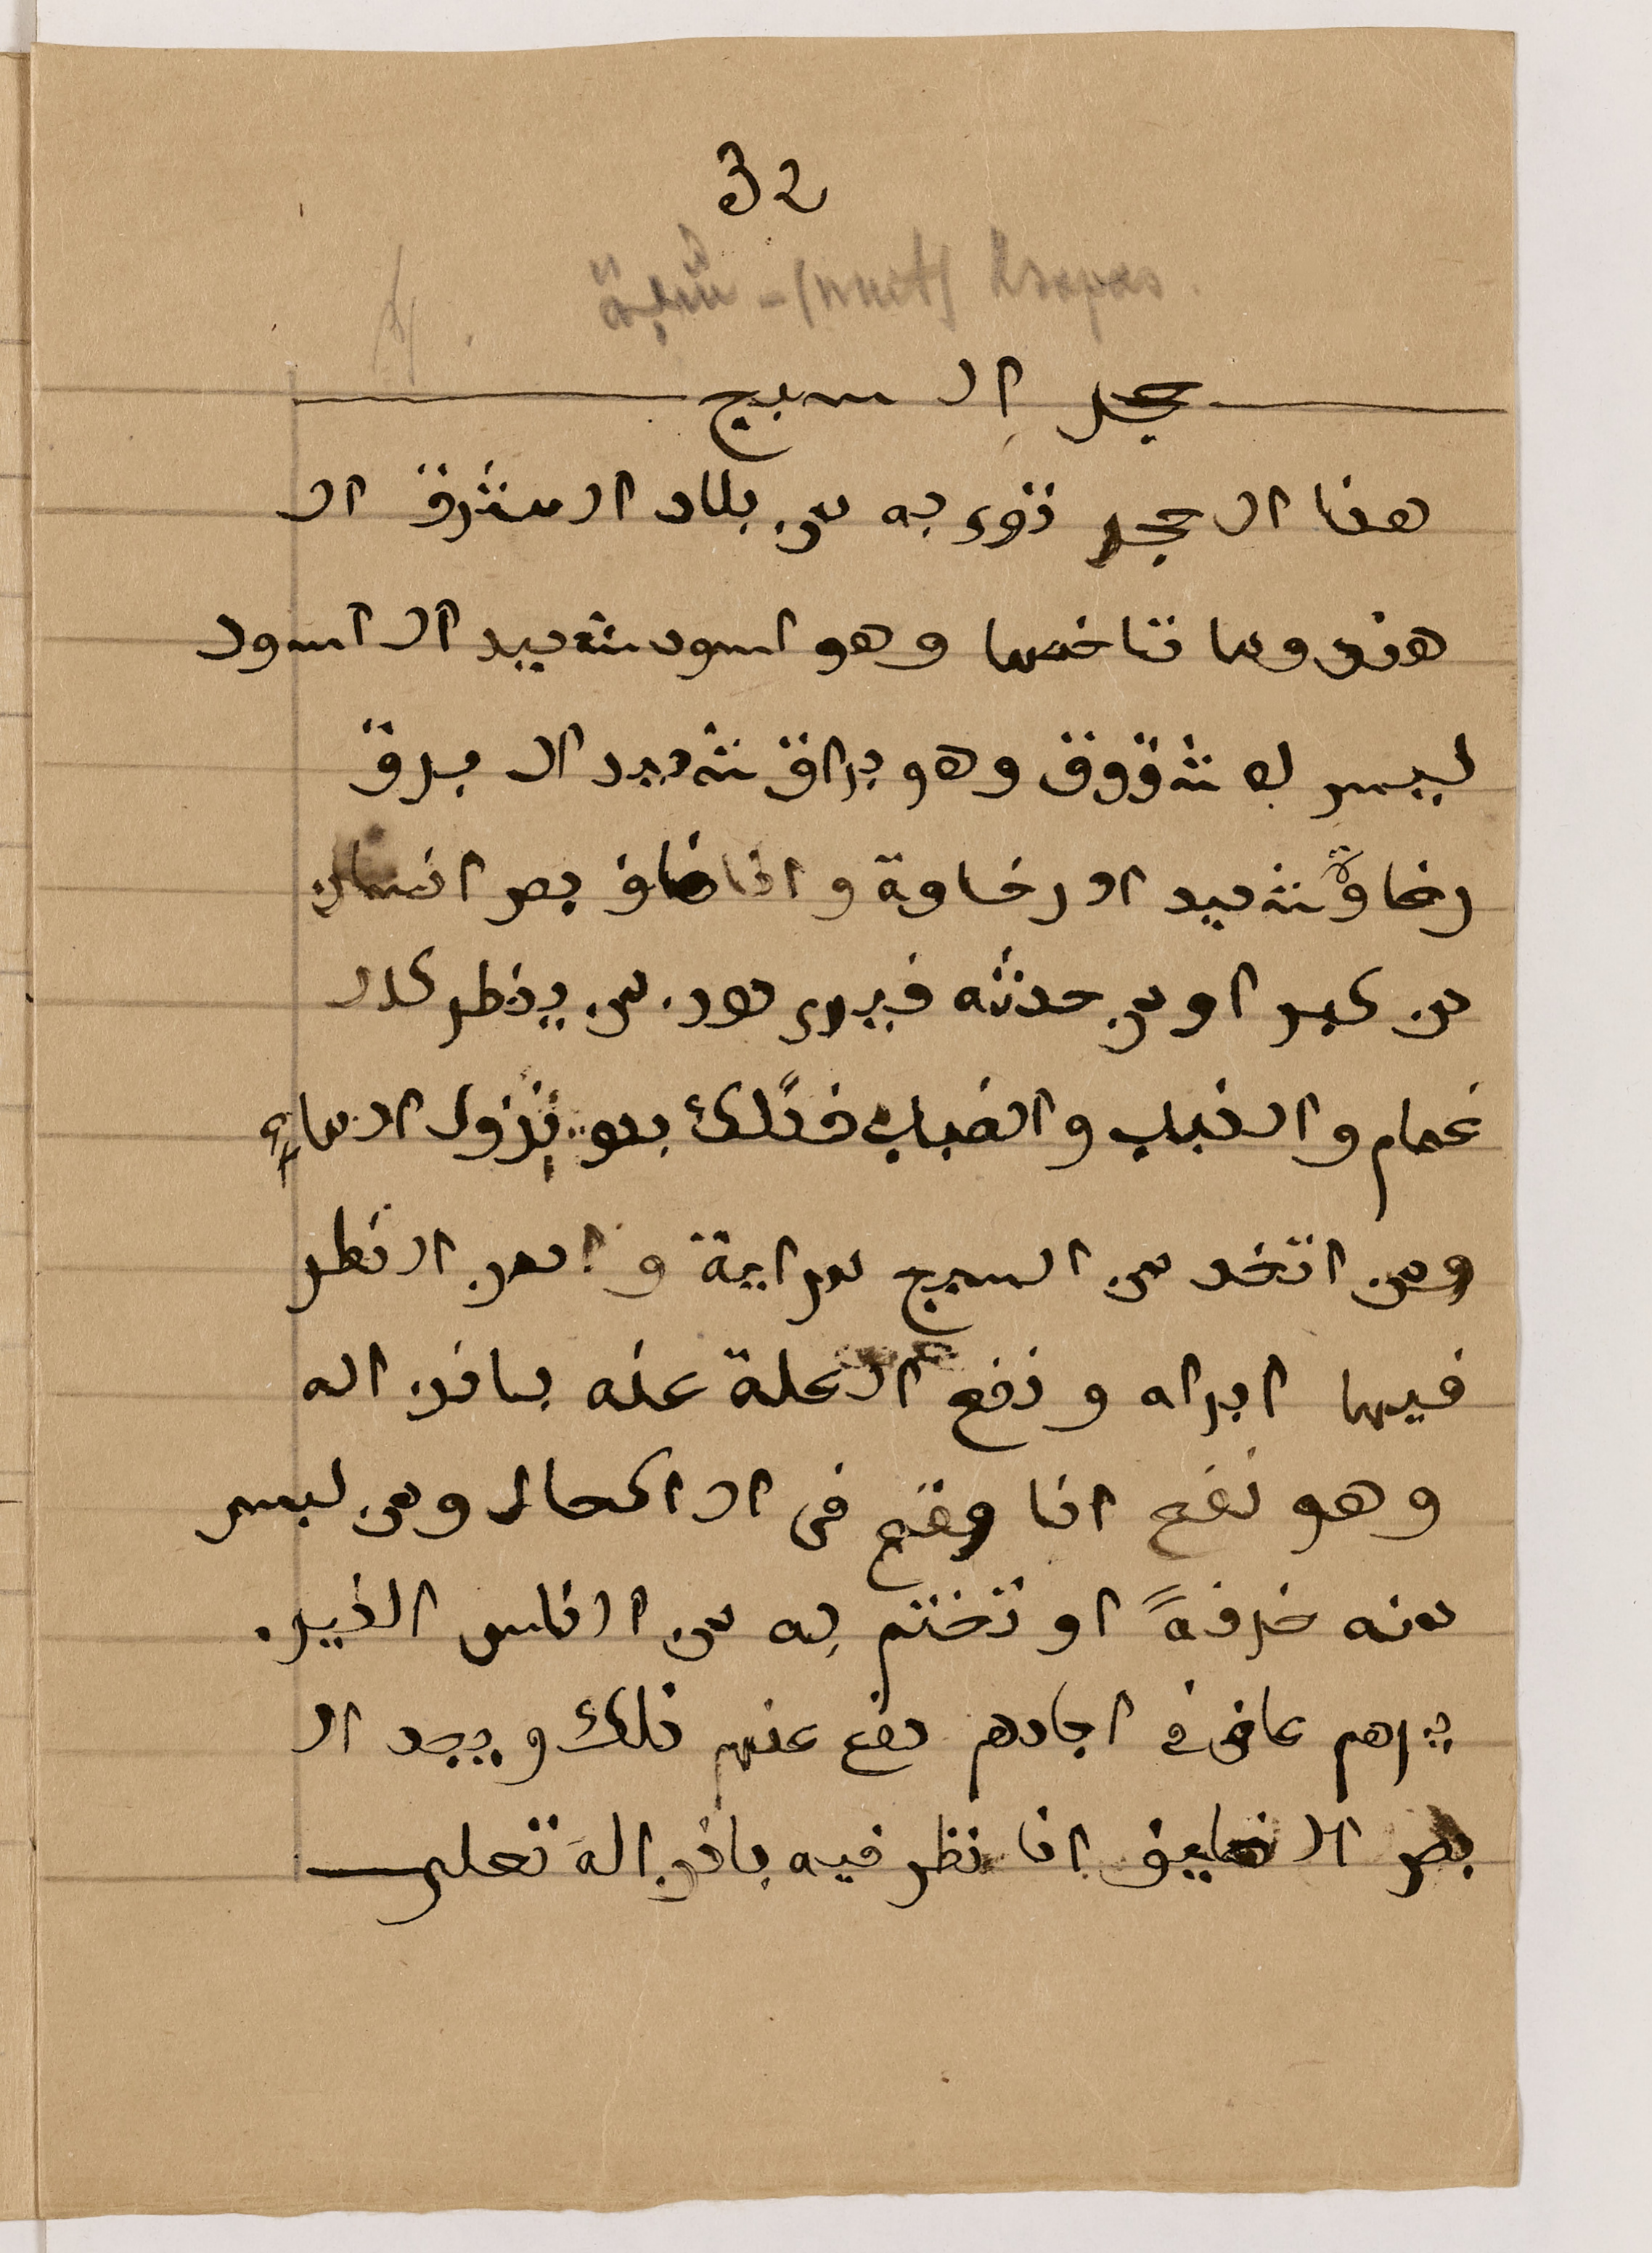 32
حجر ال سبج
هذا ال حجر نؤى به من بلاد ال مشرق ال
هند وما تاخمها وهو اسود شديد ال اسود
ليس له شقوق وهو براق شديد ال برق
رخاوة شديد ال رخاوة و اذا ضاف بصر انسان
من كبر او من حدثه فيرى دود من ينظر كدل
غمام و الذباب و الضباب فذلك بدو نزول ال ماء
ومن اتخد من السبج مراية و ادمن ال نظر
فيها ابراه و نفع ال علة عنه باذن اله
وهو نفع اذا وقع فى ال اكحال ومن لبس
منه خرفة او تختم به من ال ناس الذين
يراهم عافى فى اجادهم دفع عنهم ذلك و يجد ال
بصر ال ضايف اذا نظر فيه باذن اله تعلى